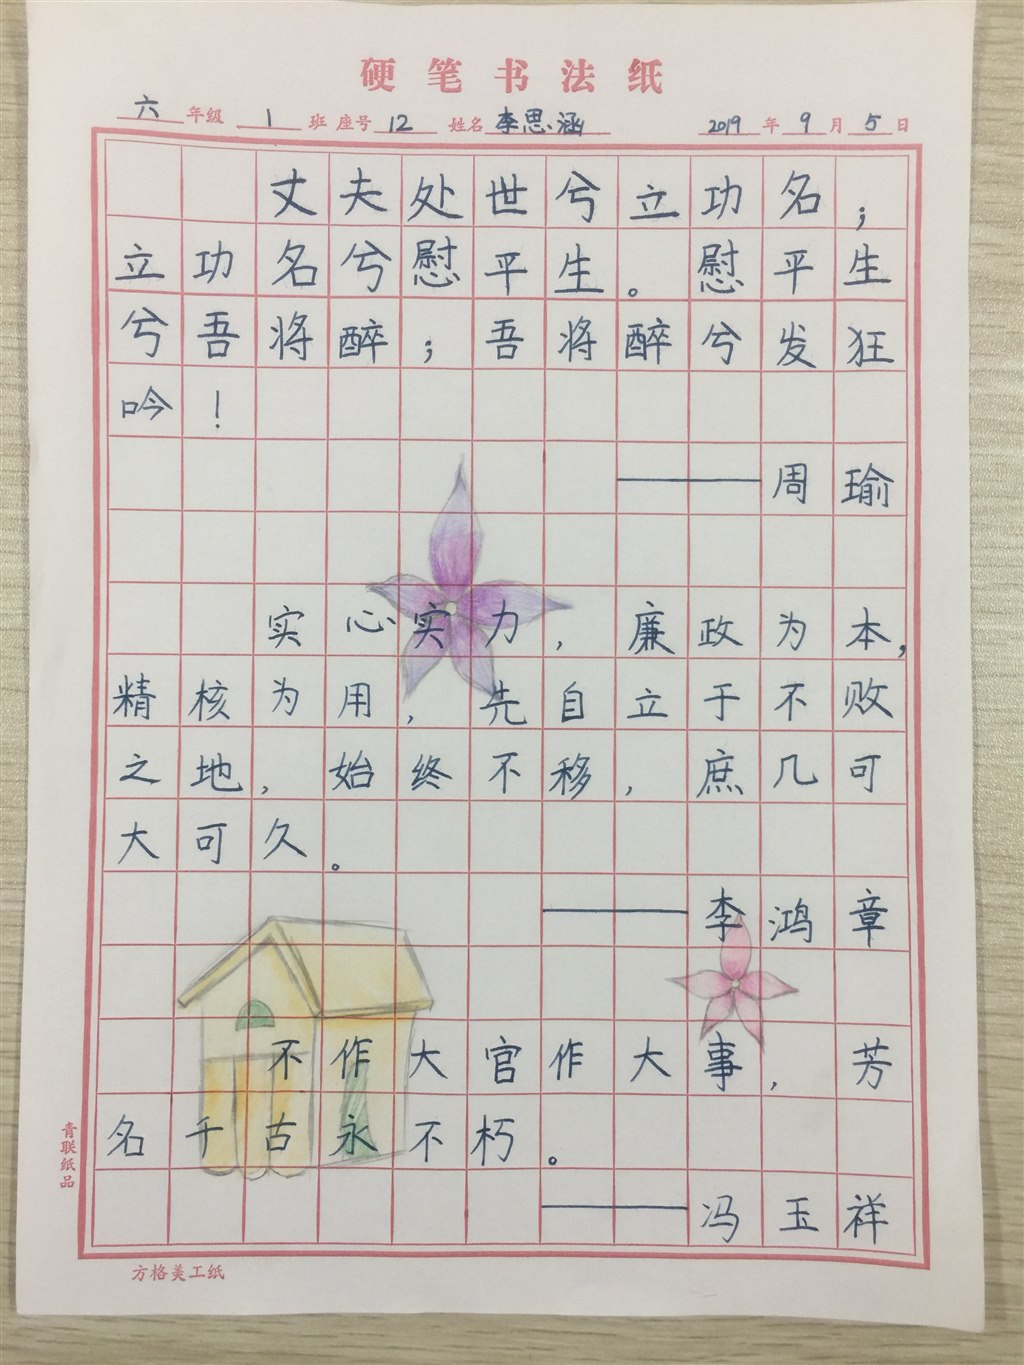 硬笔书法纸
六年级 1班 座号12 姓名李思涵 2019年9月5日
丈夫处世兮立功名；
立功名兮慰平生。慰平生
兮吾将醉；吾将醉兮发狂
吟！
——周瑜
实心实力，廉政为本，
精核为用，先自立于不败
之地，始终不移，庶几可
大可久。
——李鸿章
不作大官作大事，芳
名千古永不朽。
——冯玉祥
青联纸品
方格美工纸